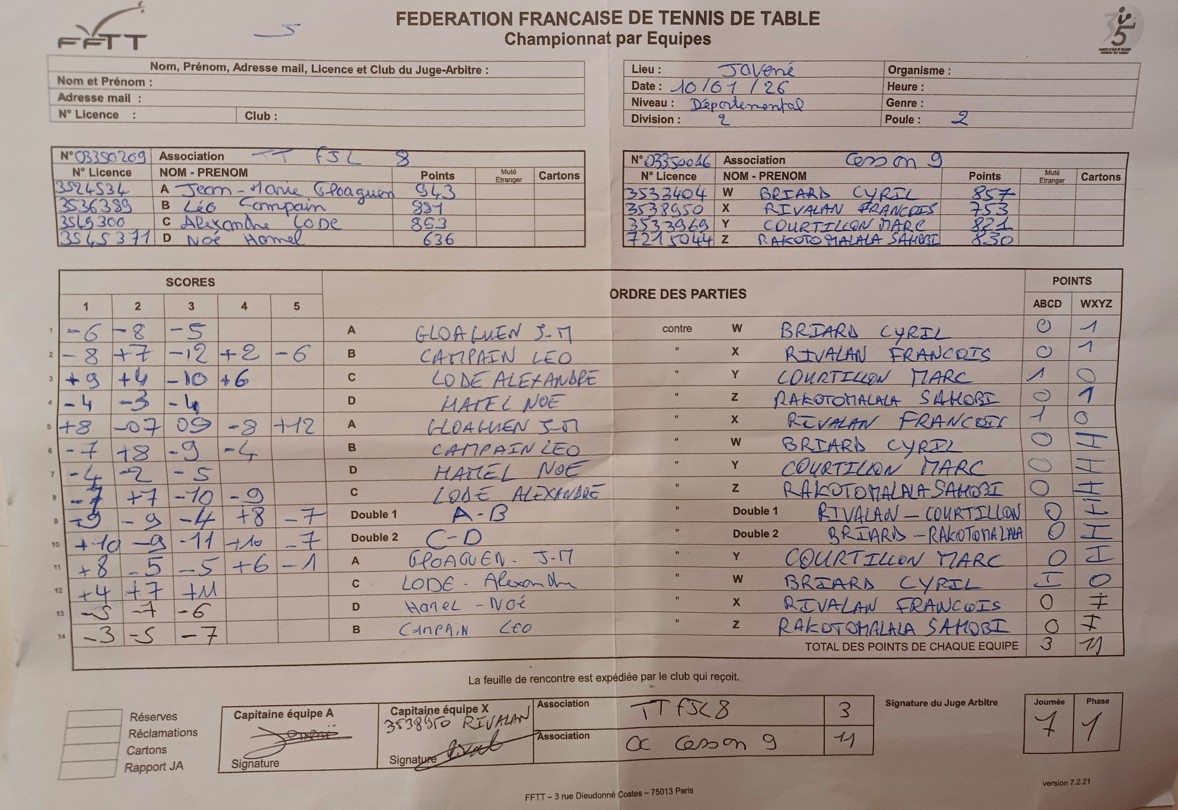 FEDERATION FRANCAISE DE TENNIS DE TABLE
Championnat par Equipes
FFTT
5
Nom, Prénom, Adresse mail, Licence et Club du Juge-Arbitre :
Nom et Prénom :
Adresse mail :
N° Licence : Club :
Lieu : Jovené Organisme :
Date : 10/01/26 Heure :
Niveau : Départemental Genre :
Division : 2 Poule : 2
N° 03350209 Association TT FJL 8
N° Licence NOM - PRENOM Points Muté Etranger Cartons
3524534 A Jean-Marie Gloaguen 943
3536389 B Léo Campain 891
3549300 C Alexandre LODE 863
3545371 D Noé Hamel 636
N° 03350016 Association Cesson 9
N° Licence NOM - PRENOM Points Muté Etranger Cartons
3533404 W BRIARD CYRIL 857
3538950 X RIVALAN FRANCOIS 753
3533969 Y COURTILLON MARC 821
7215044 Z RAKOTOMALALA SAHOBI 830
SCORES ORDRE DES PARTIES POINTS
1 2 3 4 5 ABCD WXYZ
1 -6 -8 -5 A GLOAGUEN J-M contre W BRIARD CYRIL 0 1
2 -8 +7 -12 +2 -6 B CAMPAIN LEO " X RIVALAN FRANCOIS 0 1
3 +9 +4 -10 +6 C LODE ALEXANDRE " Y COURTILLON MARC 1 0
4 -4 -3 -4 D HAMEL NOE " Z RAKOTOMALALA SAHOBI 0 1
5 +8 -07 09 -8 +12 A GLOAGUEN J-M " X RIVALAN FRANCOIS 1 0
6 -7 +8 -9 -4 B CAMPAIN LEO " W BRIARD CYRIL 0 I
7 -4 -2 -5 D HAMEL NOE " Y COURTILLON MARC 0 I
8 -7 +7 -10 -9 C LODE ALEXANDRE " Z RAKOTOMALALA SAHOBI 0 I
9 +9 -9 -4 +8 -7 Double 1 A-B " Double 1 RIVALAN-COURTILLON 0 I
10 +10 -9 -11 +10 -7 Double 2 C-D " Double 2 BRIARD-RAKOTOMALALA 0 I
11 +8 -5 -5 +6 -1 A GLOAGUEN. J-M " Y COURTILLON MARC 0 I
12 +4 +7 +11 C LODE - Alexandre " W BRIARD CYRIL I 0
13 -5 -7 -6 D Hamel - Noé " X RIVALAN FRANCOIS 0 I
14 -3 -5 -7 B CAMPAIN LEO " Z RAKOTOMALALA SAHOBI 0 I
TOTAL DES POINTS DE CHAQUE EQUIPE 3 11
La feuille de rencontre est expédiée par le club qui reçoit.
Réserves
Réclamations
Cartons
Rapport JA
Capitaine équipe A
Signature
Capitaine équipe X
3538950 RIVALAN
Signature
Association TTFJL8 3
Association OC Cesson 9 11
Signature du Juge Arbitre
Journée Phase
7 1
FFTT – 3 rue Dieudonné Costes – 75013 Paris
version 7.2.21